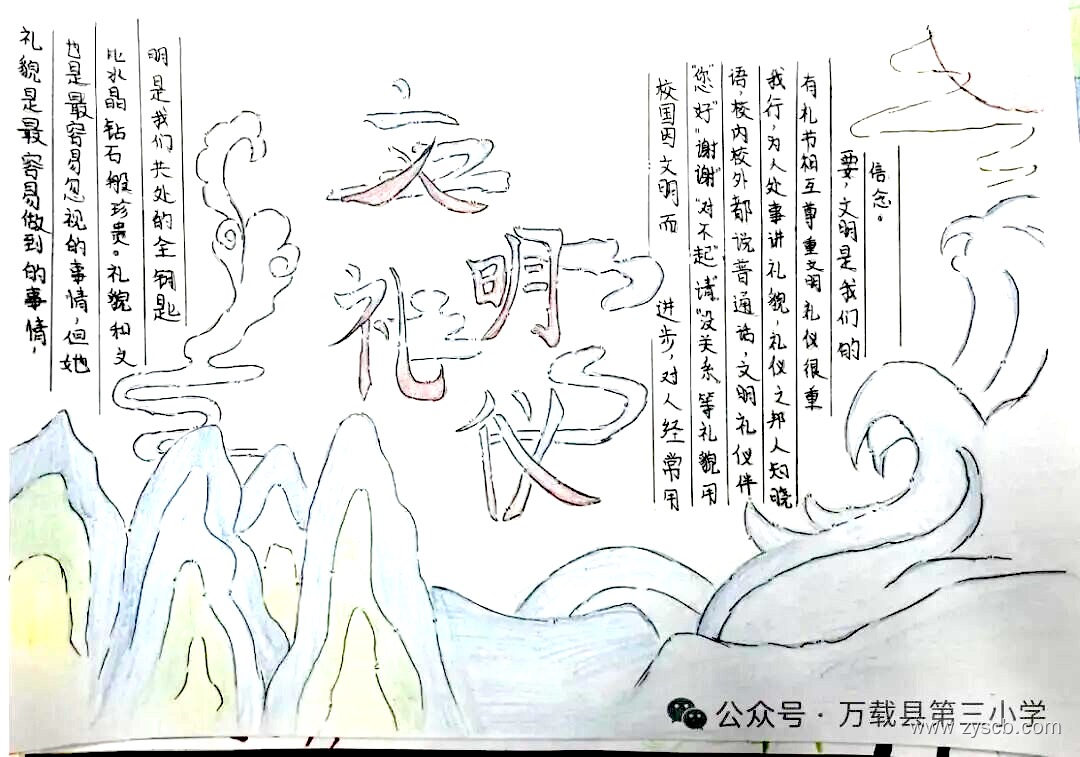 文
明
礼
仪
礼貌是最容易做到的事情，
也是最容易忽视的事情，但她
比水晶钻石般珍贵。礼貌和文
明是我们共处的全钥匙
校国因文明而 进步，对人经常用
"您"好""谢谢""对不起"请"没关系"等礼貌用
语，校内校外都说普通话，文明礼仪伴
我行，为人处事讲礼貌，礼仪之邦人知晓
有礼节相互尊重文明礼仪很重
要，文明是我们的
信念。
公众号·万载县第三小学
www.zyscb.com